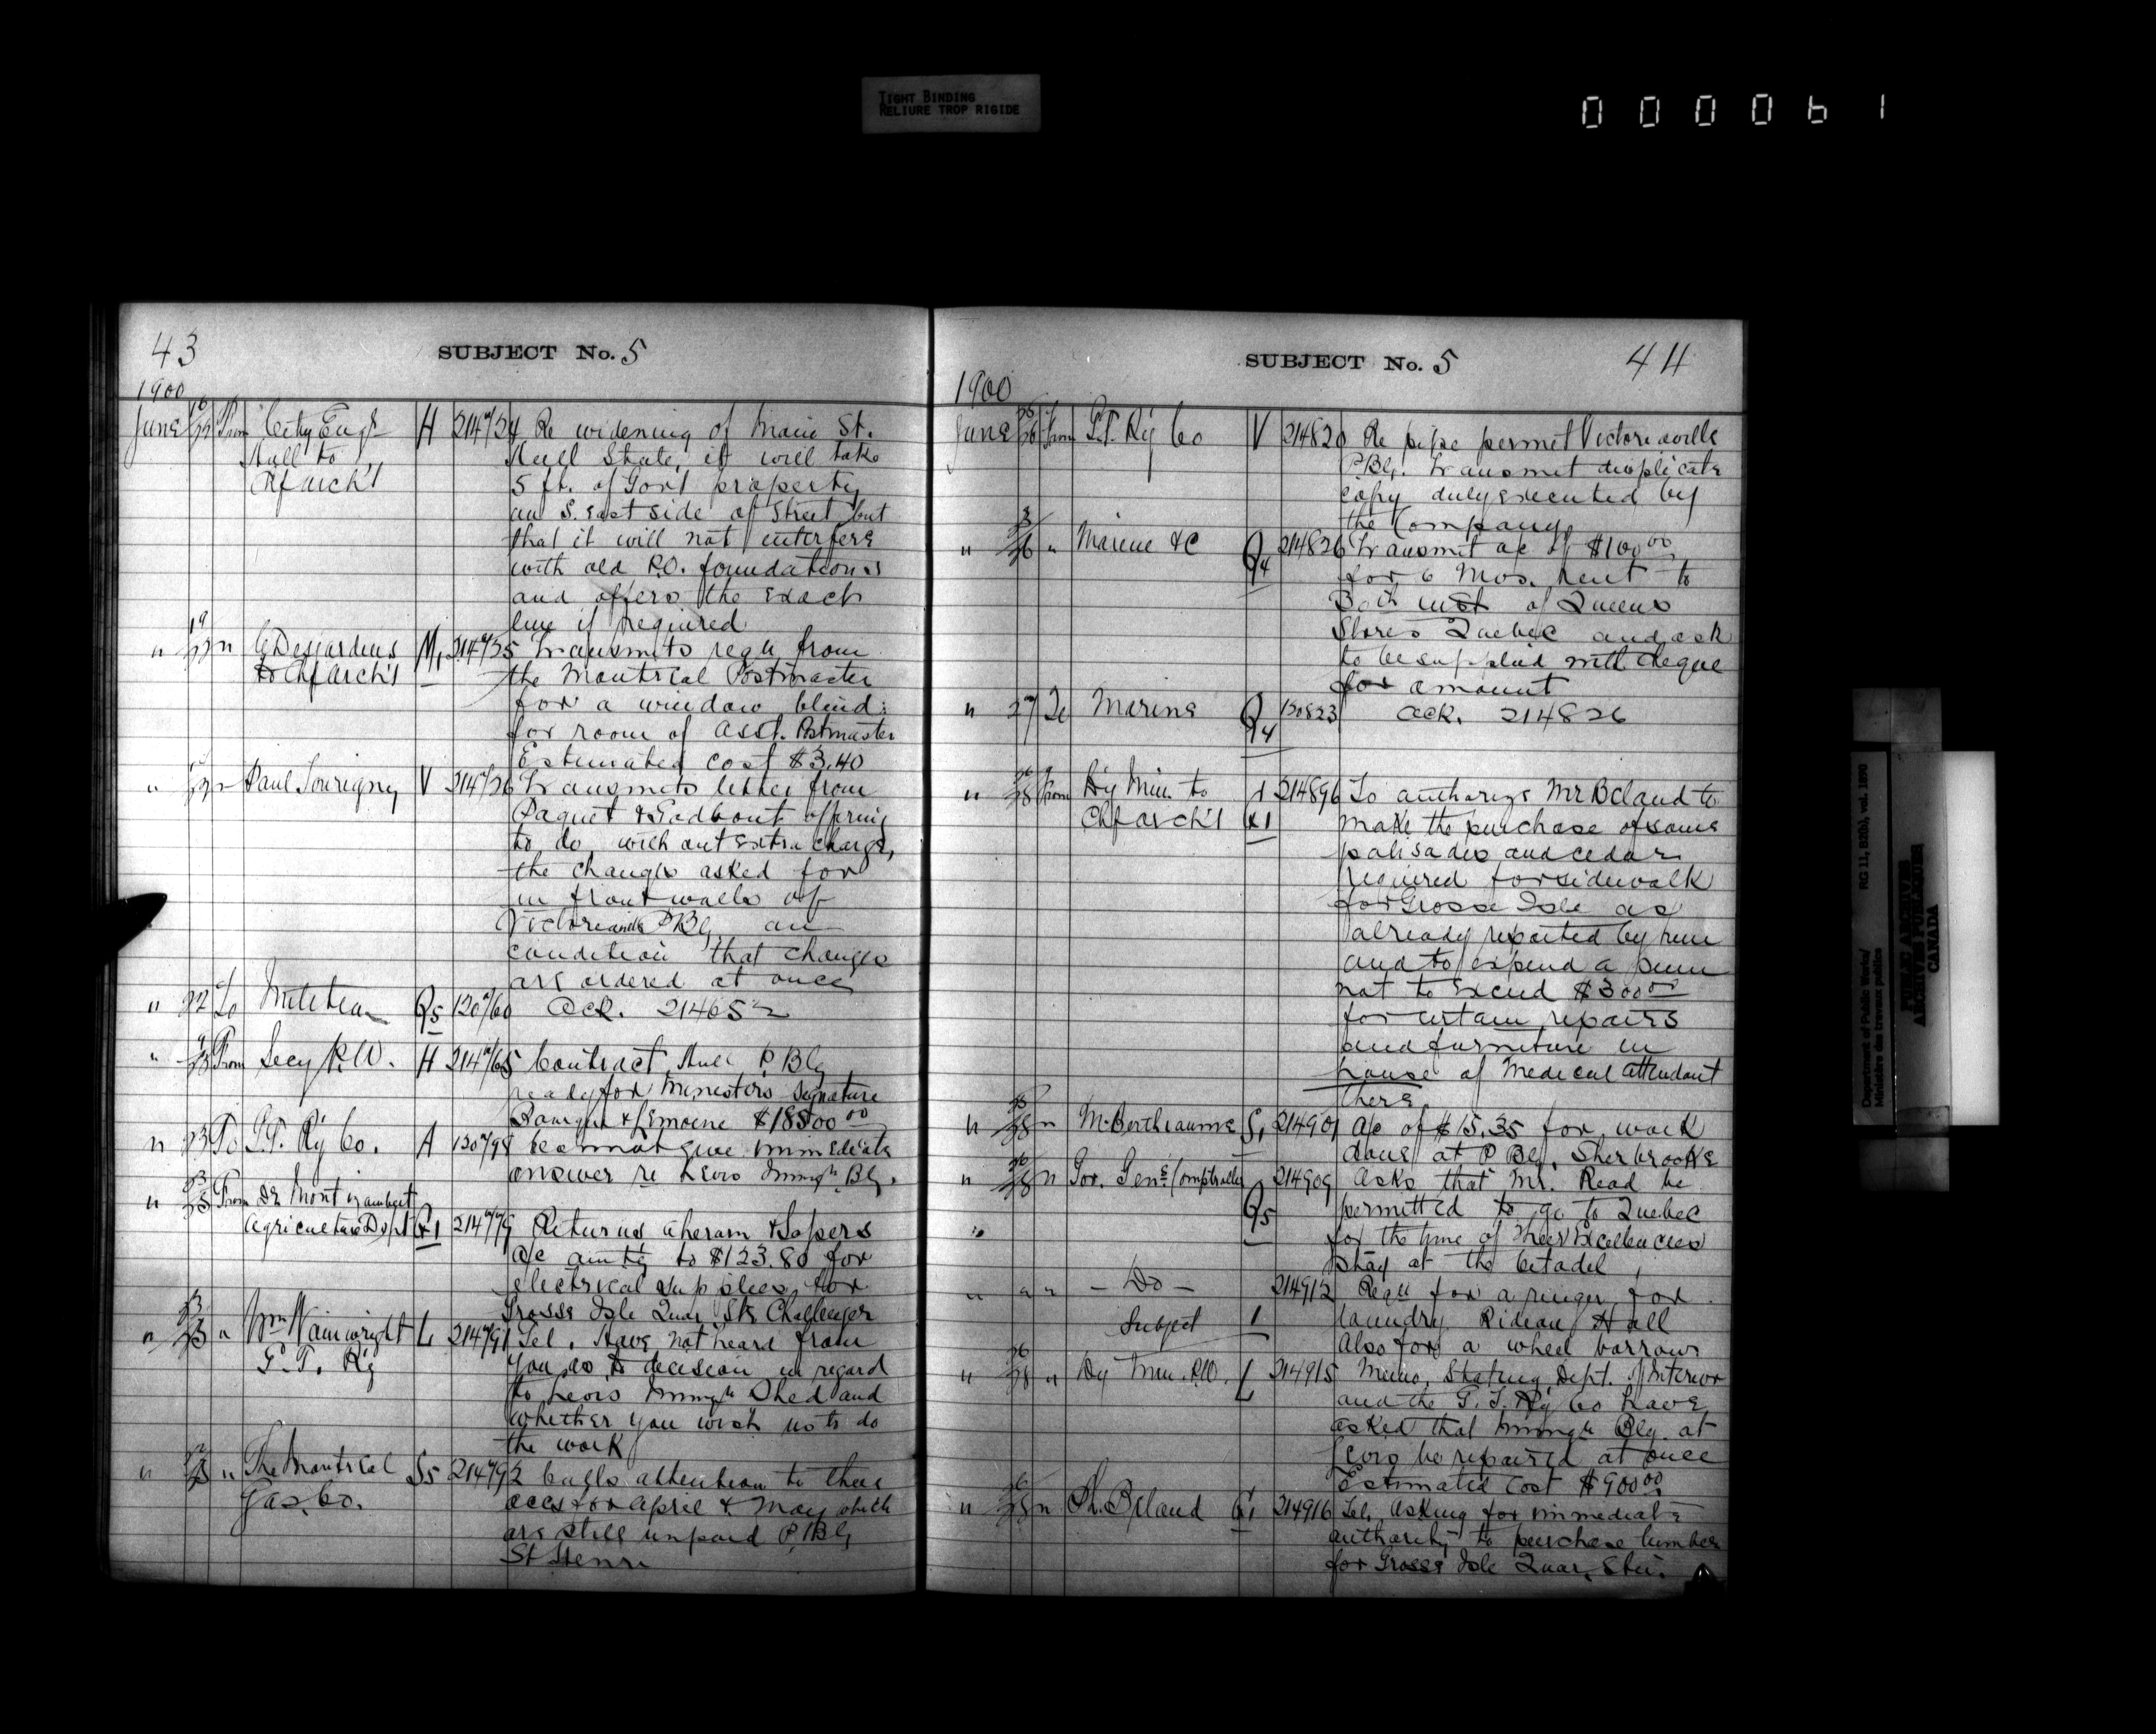 TIGHT BINDING
RELIURE TROP RIGIDE
000061
43
SUBJECT No. 5
1900
June From City Engr H 214724 Re widening of Main St.
Hull to Hull State, it will take
Chf Arch't 5 ft. of Govt property
on S. East side of Street but
that it will not interfere
with old P.O. foundations
and offers the exact
line if required
" 19 " Desjardins M1 214725 Transmits reqn from
to Chf Arch't the Montreal Postmaster
for a window blind
for room of Asst. Postmaster
Estimated cost $3.40
" Paul Tourigny V 214726 Transmits letter from
Paquet & Godbout offering
to do, without extra charge,
the changes asked for
in front walls of
Victoriaville P Blg on
condition that changes
are ordered at once
" 22 To Q5 120760 Ack. 214652
" From Secy P.W. H 214765 Contract Hull P. Blg
ready for Ministers signature
" 23 To G.T. Ry Co. A Cannot give immediate
answer re Levis Immign Blg.
" 23 From Dr Montizambert
Agriculture Dept 214779 Returns Ahearn & Sopers
a/c amtg to $123.80 for
electrical supplies for
Grosse Isle Quar. Str. Challenger
" 23 " Wm Wainwright L 214791 Tel. Have not heard from
G.T. Ry you as to decision in regard
to Levis Immign Shed and
whether you wish us to do
the work
" " The Montreal S5 214792 Calls attention to their
Gas Co. accs for April & May which
are still unpaid P. Blg
St Henri
SUBJECT No. 5
44
1900
June 26 From G.T. Ry Co V 214820 Re pipe permit Victoriaville
P Blg. Transmit duplicate
copy duly executed by
the Company
" 26 " Marine &c Q4 214826 Transmit a/c of $100.00
for 6 Mos. rent to
inst of Queens
Stores Quebec and ask
to be supplied with cheque
for amount
" 27 To Marine Q4 120823 Ack. 214826
" 28 From Dy Min. to 214896 To authorize Mr Beland to
Chf Arch't make the purchase of some
palisades and cedar
required for sidewalk
for Grosse Isle as
already reported by him
and to expend a sum
not to exceed $300.00
for certain repairs
and furniture in
house of Medical attendant
there
" 28 " M. Bertheaume S1 214901 A/c of $15.35 for work
done at P Blg, Sherbrooke
" 28 " Gov. Gen's Comptroller 214909 Asks that Mr. Read be
Q5 permitted to go to Quebec
for the time of Their Excellencies
stay at the Citadel
" " " - Do - 214912 Reqn for a ringer for
Subject 1 laundry Rideau Hall
Also for a wheel barrow
" 28 " Dy Min. P.W. L 214915 Memo, Stating Dept. of Interior
and the G.T. Ry Co have
asked that Immign Blg. at
Levis be repaired at once
Estimated cost $900.00
" 28 " Ph. Beland 214916 Tel. Asking for immediate
authority to purchase lumber
for Grosse Isle Quar. Stn.
Department of Public Works/
Ministère des travaux publics
RG 11, B2(b), vol. 1890
PUBLIC ARCHIVES
ARCHIVES PUBLIQUES
CANADA